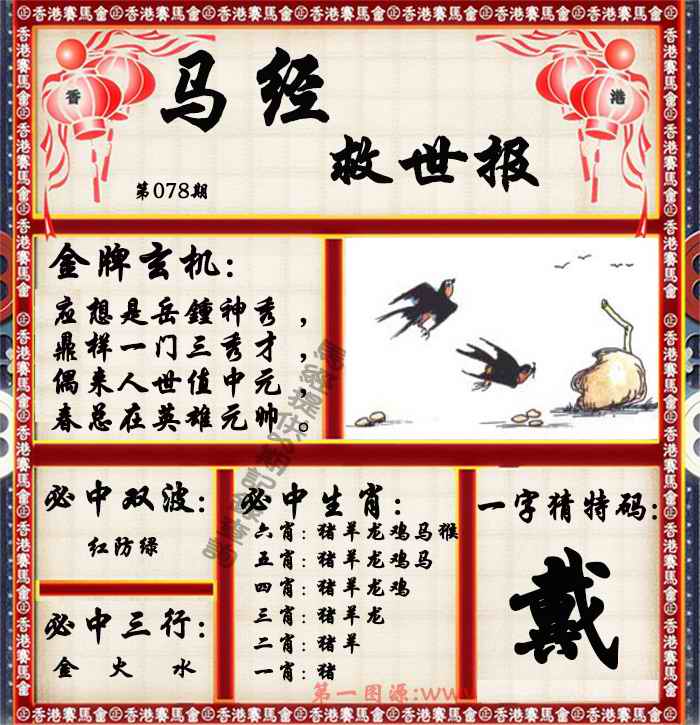 香港賽馬會
香
港
马经
救世报
第078期
金牌玄机:
应想是岳鍾神秀，
鼎样一门三秀才，
偶来人世值中元，
春总在英雄元帅。
必中双波:
红防绿
必中三行:
金 火 水
必中生肖:
六肖: 猪羊龙鸡马猴
五肖: 猪羊龙鸡马
四肖: 猪羊龙鸡
三肖: 猪羊龙
二肖: 猪羊
一肖: 猪
一字猜特码:
戴
第一图源:www